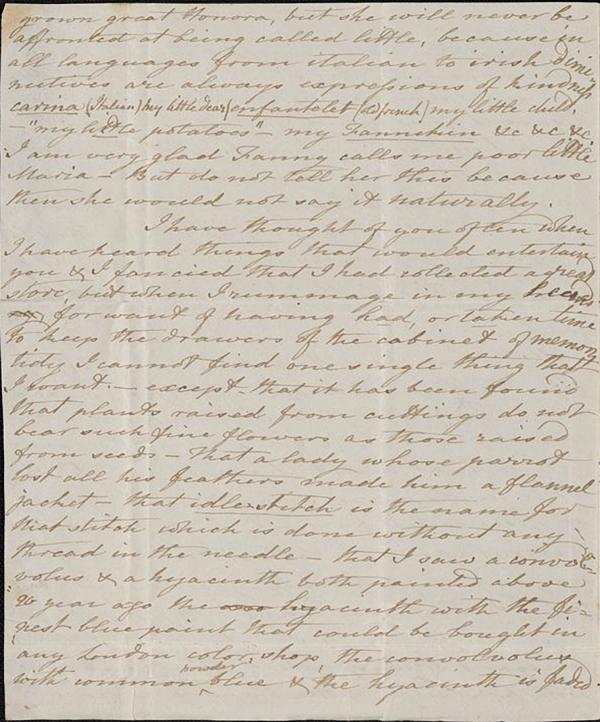 grown great Honora, but she will never be
affronted at being called little, because in
all languages from italian to irish dimi-
nutives are always expressions of kindness
carina (Italian) my little dear / enfantelet (old french) my little child.
- "my little potatoes" - my Fannikin &c &c &c
I am very glad Fanny calls me poor little
Maria - But do not tell her this because
then she would not say it naturally.
I have thought of you often when
I have heard things that would entertain
you & I fancied that I had collected a great
store, but when I rummage in my head
for want of having had, or taken time
to keep the drawers of the cabinet of memory
tidy I cannot find one single thing that
I want. - except - that it has been found
that plants raised from cuttings do not
bear such fine flowers as those raised
from seeds - that a lady whose parrot
lost all his feathers made him a flannel
jacket - that idle-stitch is the name for
that stitch which is done without any
thread in the needle - that I saw a convol-
volus & a hyacinth both painted above
20 year ago the hyacinth with the fi-
nest blue paint that could be bought in
any London color shop, the convolvolus
with common powder blue & the hyacinth is faded